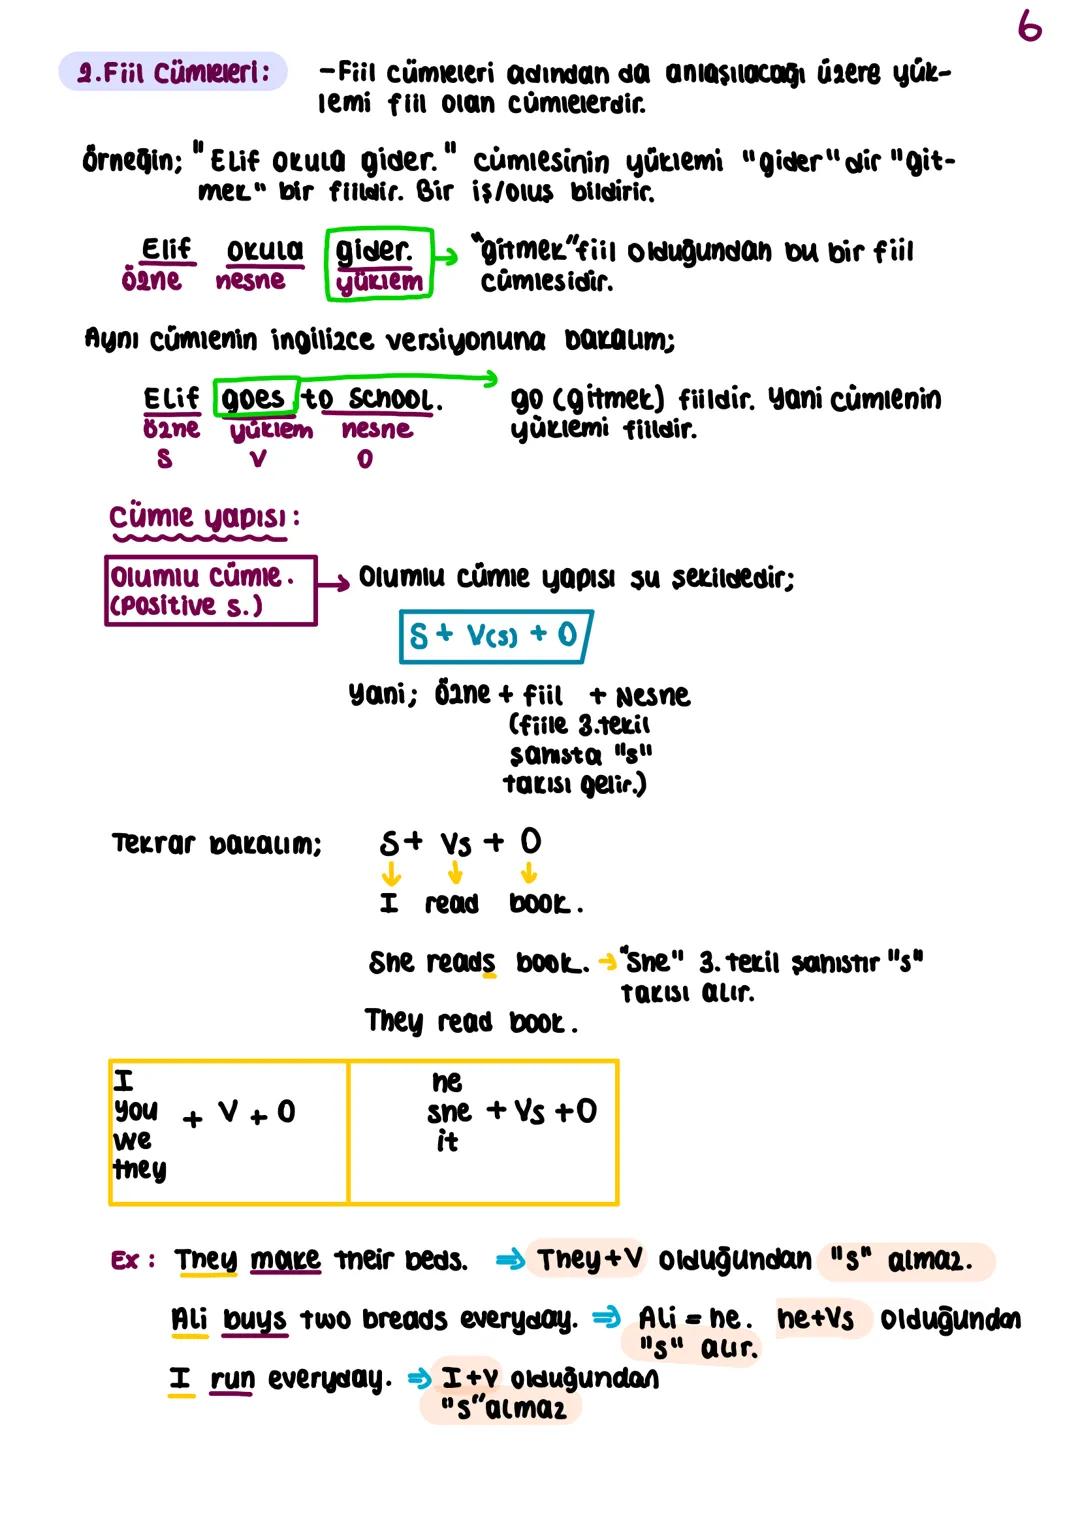 6
2.Fiil Cümleleri: -Fiil cümleleri adından da anlaşılacağı üzere yük-
lemi fiil olan cümlelerdir.
Örneğin; "Elif okula gider." cümlesinin yüklemi "gider"dir "git-
mek" bir fiildir. Bir iş/oluş bildirir.
Elif okula gider. → "gitmek"fiil olduğundan bu bir fiil
özne nesne yüklem cümlesidir.
Aynı cümlenin ingilizce versiyonuna bakalım;
Elif goes to School. → go (gitmek) fiildir. Yani cümlenin
özne yüklem nesne yüklemi fiildir.
S V O
Cümle yapısı:
Olumlu Cümle. → Olumlu cümle yapısı şu şekildedir;
(Positive s.)
S + V(s) + O
Yani; özne + fiil + Nesne
(fiile 3.tekil
şahısta "s"
takısı gelir.)
Tekrar bakalım; S + Vs + O
↓ ↓ ↓
I read book.
She reads book. → "She" 3. tekil şahıstır "s"
takısı alır.
They read book.
I
you + V + O
we
they
he
she + Vs + O
it
Ex: They make their beds. ⇒ They+V olduğundan "s" almaz.
Ali buys two breads everyday. ⇒ Ali = he. he+Vs olduğundan
"s" alır.
I run everyday. ⇒ I+V olduğundan
"s"almaz